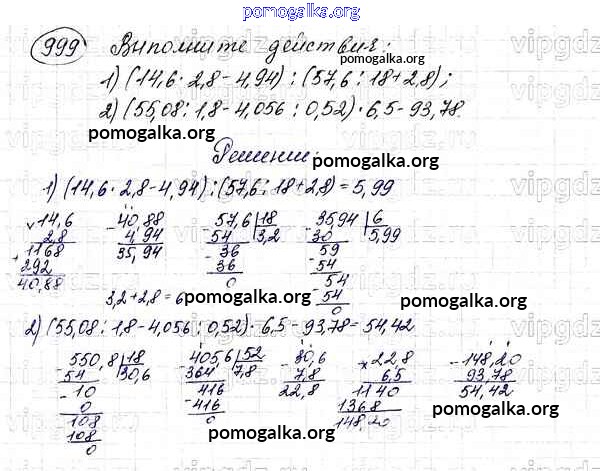 pomogalka.org
999 Выполните действия:
1) (14,6 · 2,8 - 4,94) : (57,6 : 18 + 2,8);
2) (55,08 : 1,8 - 4,056 : 0,52) · 6,5 - 93,78.
pomogalka.org
pomogalka.org
Решение:
1) (14,6 · 2,8 - 4,94) : (57,6 : 18 + 2,8) = 5,99
14,6 - 40,88 - 57,6 | 18 - 35,94 | 6
2,8 4,94 54 3,2 30 5,99
1168 35,94 - 36 59
+ 292 36 - 54
40,88 0 54
3,2 + 2,8 = 6 - 54
0
pomogalka.org
pomogalka.org
2) (55,08 : 1,8 - 4,056 : 0,52) · 6,5 - 93,78 = 54,42
550,8 | 18 - 405,6 | 52 - 30,6 × 22,8 - 148,20
- 54 30,6 364 7,8 7,8 6,5 93,78
- 10 - 416 22,8 1140 54,42
0 416 1368
108 0 148,20
108
0
pomogalka.org
pomogalka.org
vipgdz